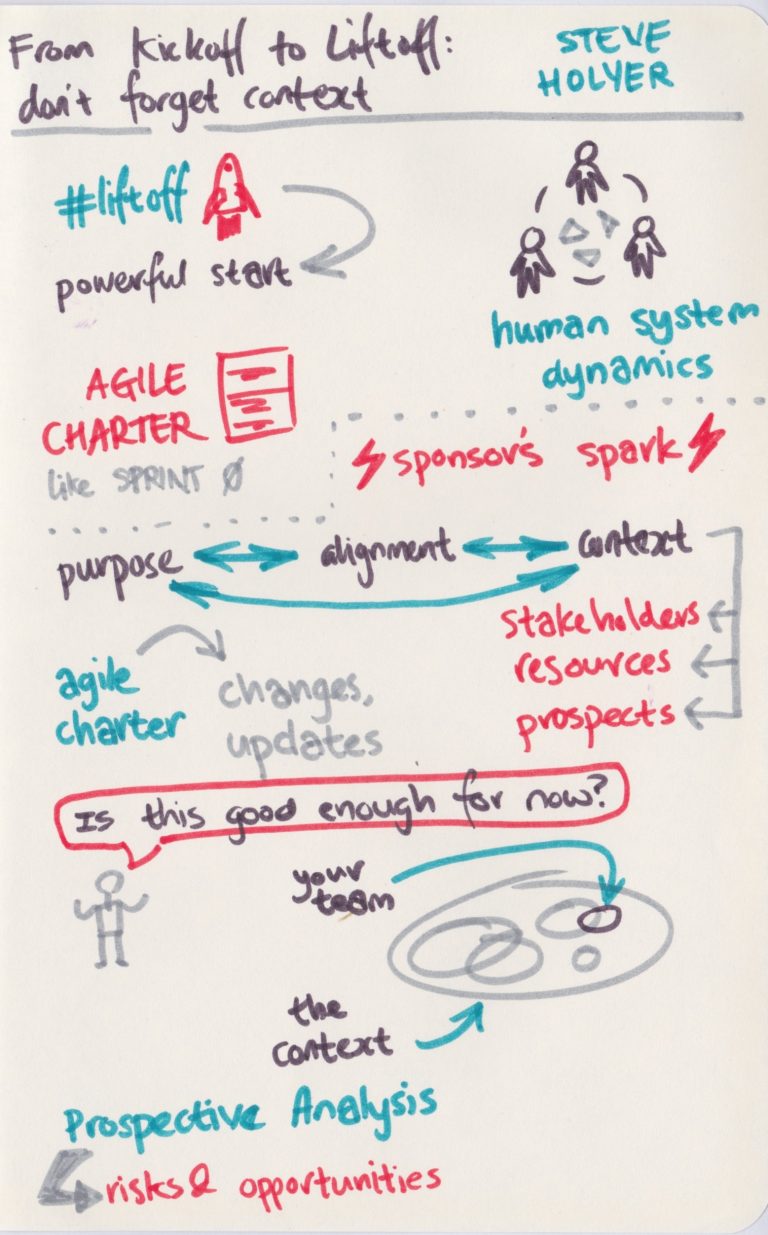 From Kickoff to Liftoff:
don't forget context
STEVE
HOLYER
#liftoff
powerful start
human system
dynamics
AGILE
CHARTER
like SPRINT Ø
sponsor's spark
purpose
alignment
context
stakeholders
resources
prospects
agile
charter
changes,
updates
Is this good enough for now?
your
team
the
context
Prospective Analysis
risks & opportunities